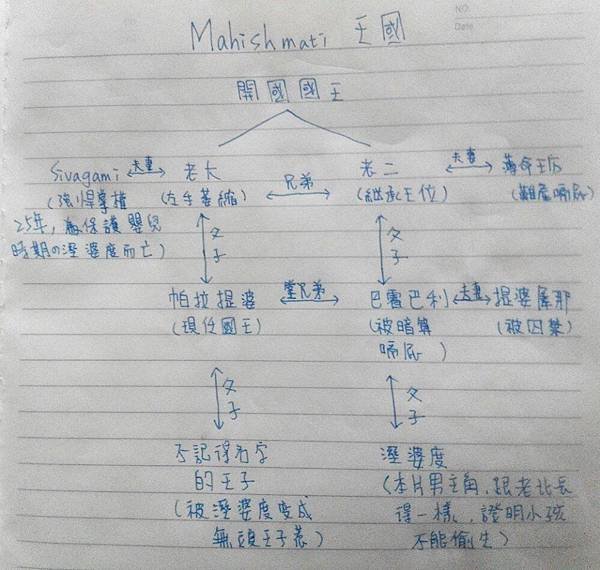 NO.
Date
Mahishmati 王國
開國國王
Sivagami 夫妻 老大 兄弟 老二 夫妻 薄命王后
(強悍掌權 (左手萎縮) (繼承王位) (難產嗝屁)
25年,為保護嬰兒
時期の溼婆度而亡)
父子 父子
帕拉提婆 堂兄弟 巴霍巴利 夫妻 提婆犀那
(現任國王) (被暗算 (被囚禁)
嗝屁)
父子 父子
不記得名字 溼婆度
的王子 (本片男主角,跟老北長
(被溼婆度變成 得一樣,證明小孩
無頭王子惹) 不能偷生)